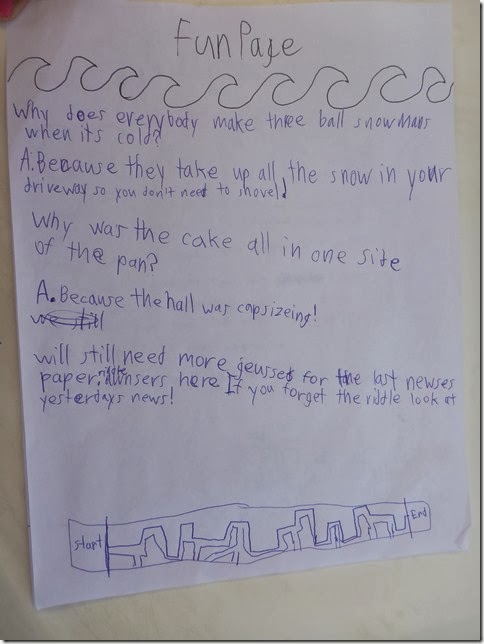 Fun Page
Why does everybody make three ball snowmans
when its cold?
A. Because they take up all the snow in your
driveway so you don't need to shovel!
Why was the cake all in one site
of the pan?
A. Because the hall was capsizeing!
we still
will still need more jeusses for the last newses
paper, right ansers here If you forget the riddle look at
yesterdays news!
Start
End